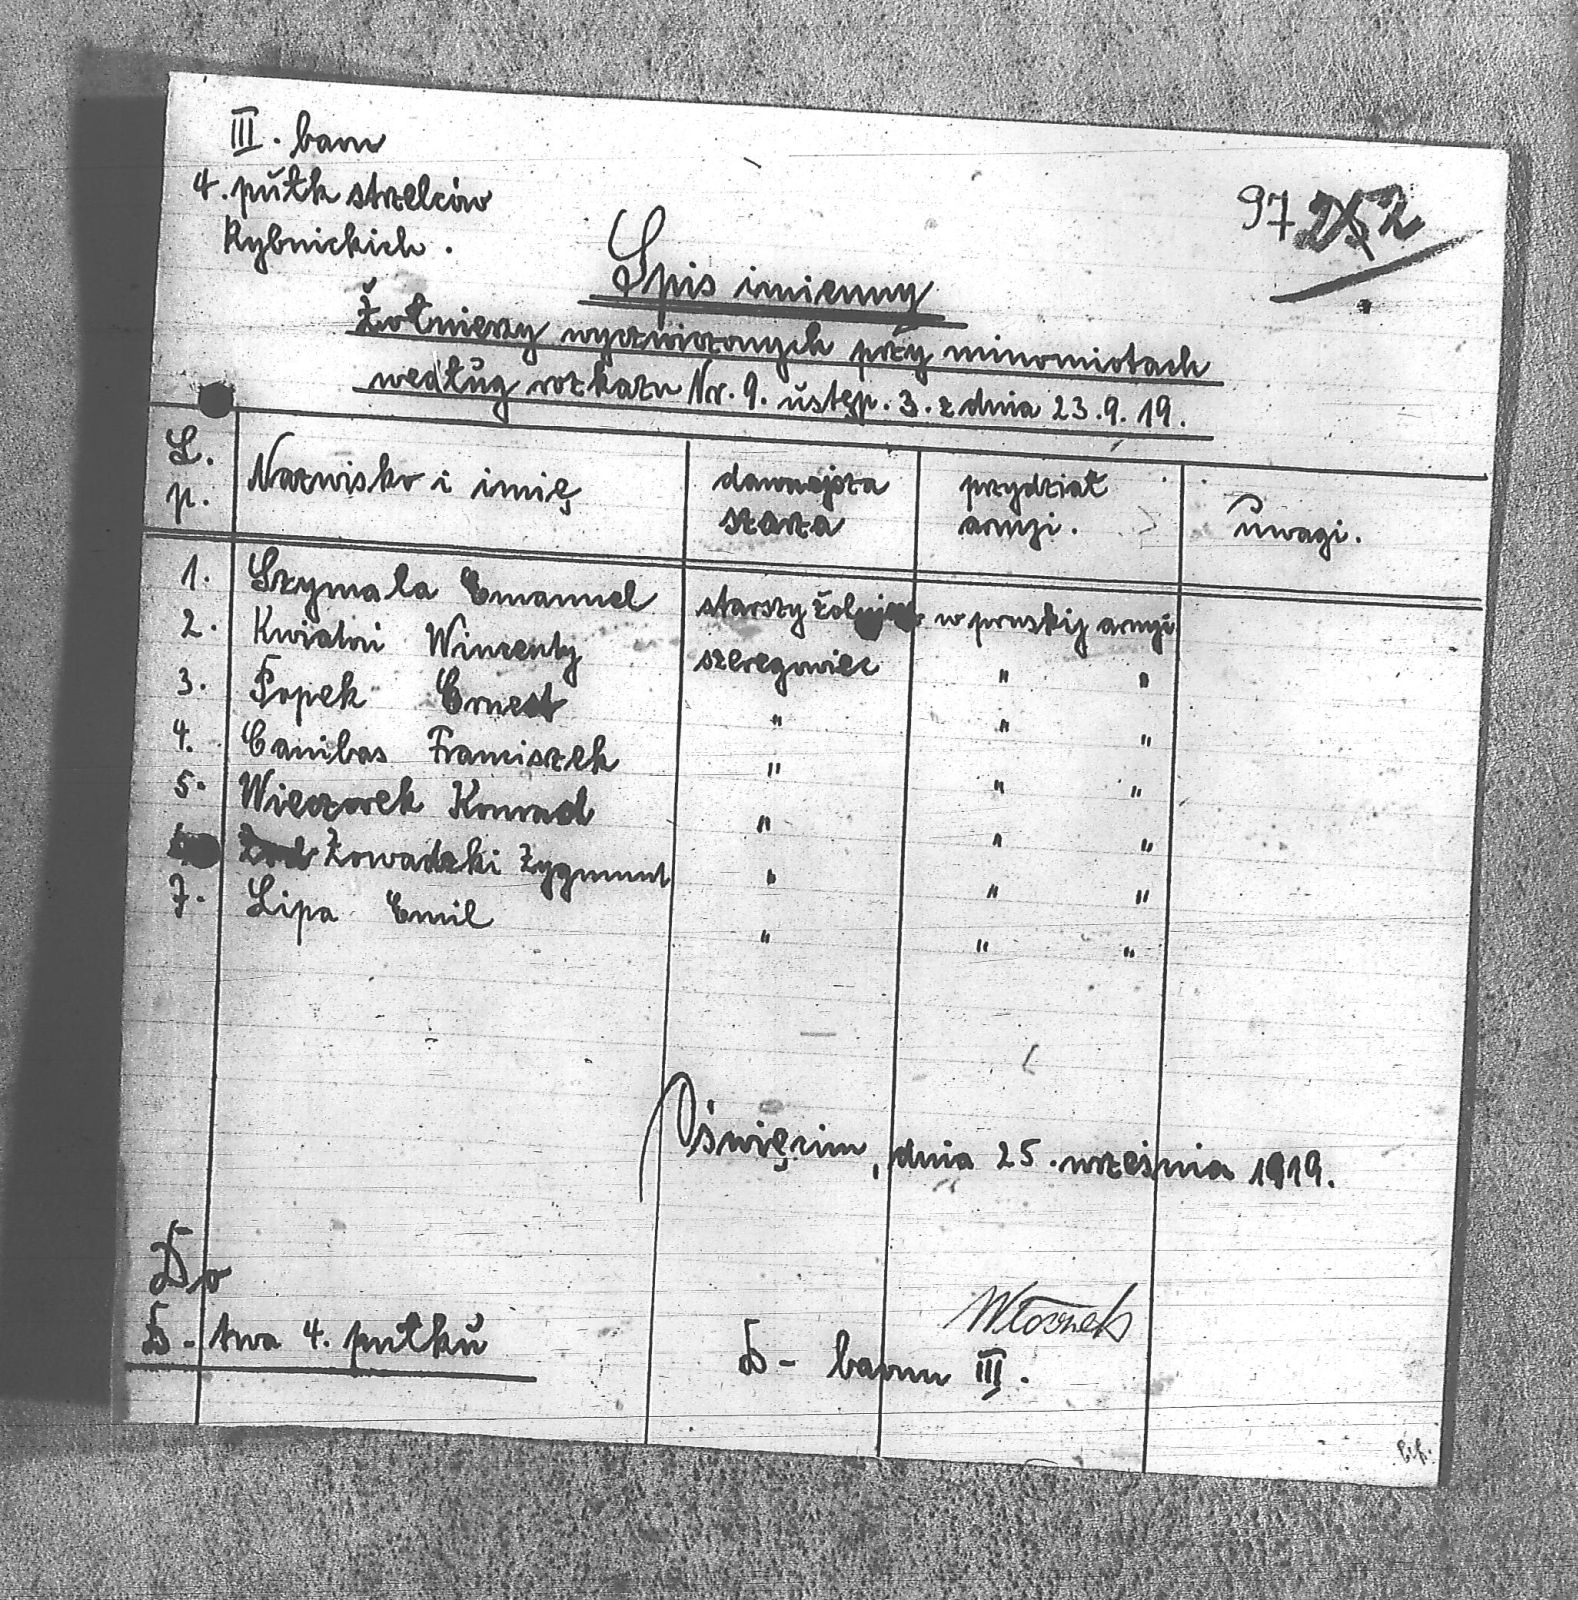 III. baon
4. pułk strzelców
Rybnickich.
97 252
Spis imienny
Żołnierzy wyćwiczonych przy minomiotach
według rozkazu Nr. 9. ustęp. 3. z dnia 23.9.19.
L. p. Nazwisko i imię dawniejsza szarża przydział armji. uwagi.
1. Szymala Emanuel starszy żołnierz w pruskij armji
2. Kwiatoń Wincenty szeregowiec " "
3. Popek Ernest " " "
4. Canibas Franciszek " " "
5. Wieczorek Konrad " " "
Zowadzki Zygmunt " " "
7. Lipa Emil " " "
Oświęcim, dnia 25. września 1919.
Do
D-twa 4. pułku
D- baonu III.